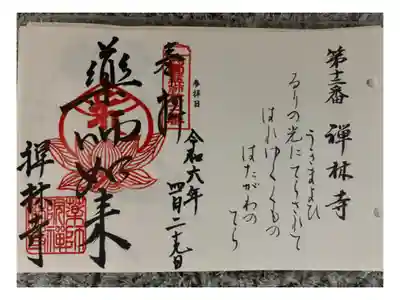 第十二番 禅林寺
うさまよひ
るりの光にてらされて
はれゆくくもの
はたがわの
てら
参拝日
令和六年
四月二十九日
奉拝
薬師如来
禅林寺